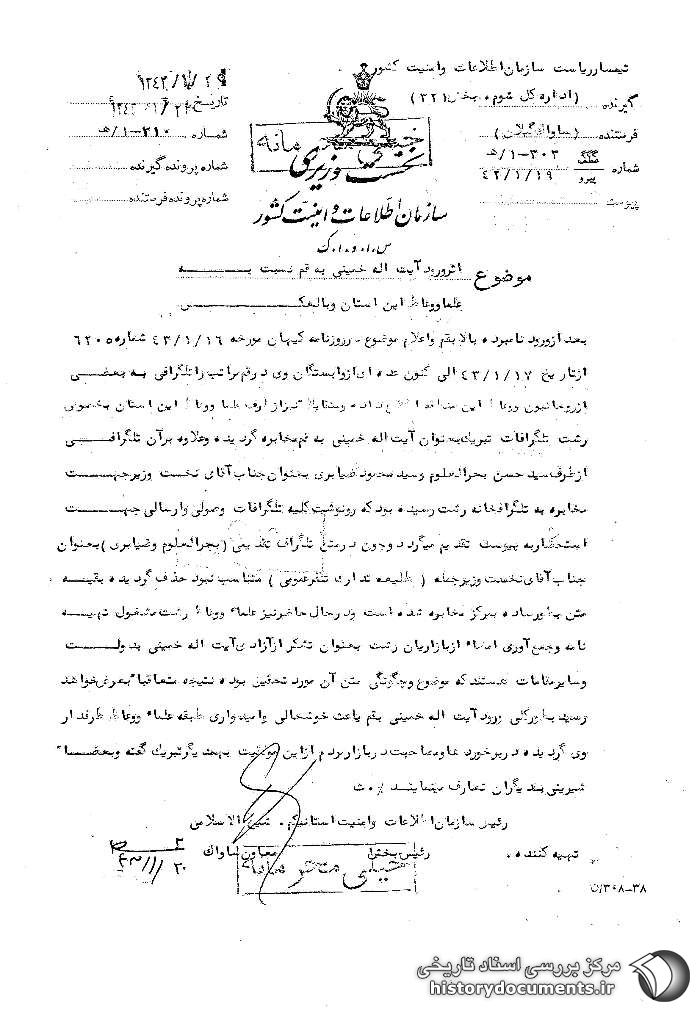 تیمسار ریاست سازمان اطلاعات و امنیت کشور
گیرنده (اداره کل سوم، بخش ۳۲۱)
فرستنده (ساواک گیلان)
شماره ۳۰۳-۱/ه
پیرو ۴۳/۱/۱۹
پیوست
تاریخ
شماره ۲۱۰-۱/ه
شماره پرونده گیرنده
شماره پرونده فرستنده
خیلی محرمانه
نخست وزیری
سازمان اطلاعات و امنیت کشور
س.ا.و.ا.ک
موضوع اثر ورود آیت اله خمینی به قم نسبت به
علما و وعاظ این استان و بالعکس
بعد از ورود نامبرده بالا بقم و اعلام موضوع در روزنامه کیهان مورخه ۴۳/۱/۱۶ شماره ۶۲۰۵
از تاریخ ۴۳/۱/۱۷ الی کنون عده ای از وابستگان وی در قم مراتب را تلگرافی به بعضی
از روحانیون و وعاظ این منطقه اطلاع داده و متقابلا نیز از طرف علما و وعاظ این استان بخصوص
رشت تلگرافات تبریک بعنوان آیت اله خمینی به قم مخابره گردیده و علاوه بر آن تلگرافی
از طرف سید حسن بحرالعلوم و سید محمود ضیابری بعنوان جناب آقای نخست وزیر جهت
مخابره به تلگرافخانه رشت رسیده بود که رونوشت کلیه تلگرافات وصولی و ارسالی جهت
استحضار به پیوست تقدیم میگردد و چون در متن تلگراف تقدیمی (بحرالعلوم و ضیابری) بعنوان
جناب آقای نخست وزیر جمله ( متناسب نبود حذف گردیده بقیه
متن بطور ساده بمرکز مخابره شده است و در حال حاضر نیز علماء و وعاظ رشت مشغول تهیه
نامه و جمع آوری امضاء از بازاریان رشت بعنوان تشکر از آزادی آیت اله خمینی بدولت
و سایر مقامات هستند که موضوع و چگونگی متن آن مورد تحقیق بوده نتیجه متعاقبا بعرض خواهد
رسید بطور کلی ورود آیت اله خمینی بقم باعث خوشحالی و امیدواری طبقه علماء و وعاظ طرفدار
وی گردیده در برخورد ها و مصاحبت در بازار بردم از این موفقیت بهمدیگر تبریک گفته و بعضاً
شیرینی بدیگران تعارف مینمایند. ث
رئیس سازمان اطلاعات و امنیت استان یکم. شیخ الاسلامی
تهیه کننده . رئیس بخش معاون ساواک
خیلی محرمانه
۳۰۸-۳۸/ن
مرکز بررسی اسناد تاریخی
historydocuments.ir